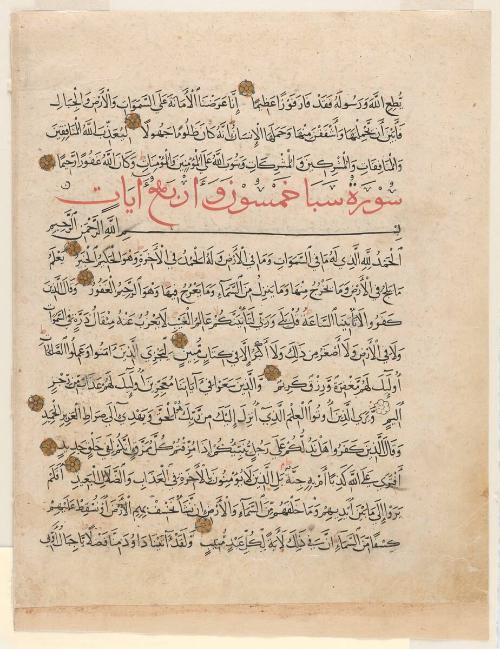 يُطِعِ اللَّهَ وَرَسُولَهُ فَقَدْ فَازَ فَوْزًا عَظِيمًا إِنَّا عَرَضْنَا الْأَمَانَةَ عَلَى السَّمَوَاتِ وَالْأَرْضِ وَالْجِبَالِ
فَأَبَيْنَ أَنْ يَحْمِلْنَهَا وَأَشْفَقْنَ مِنْهَا وَحَمَلَهَا الْإِنْسَانُ إِنَّهُ كَانَ ظَلُومًا جَهُولًا لِيُعَذِّبَ اللَّهُ الْمُنَافِقِينَ
وَالْمُنَافِقَاتِ وَالْمُشْرِكِينَ وَالْمُشْرِكَاتِ وَيَتُوبَ اللَّهُ عَلَى الْمُؤْمِنِينَ وَالْمُؤْمِنَاتِ وَكَانَ اللَّهُ غَفُورًا رَحِيمًا
سورة سبا خمسون و اربع آيات
بسم اللَّهِ الرَّحْمَنِ الرَّحِيمِ
الْحَمْدُ لِلَّهِ الَّذِي لَهُ مَا فِي السَّمَوَاتِ وَمَا فِي الْأَرْضِ وَلَهُ الْحَمْدُ فِي الْآخِرَةِ وَهُوَ الْحَكِيمُ الْخَبِيرُ يَعْلَمُ
مَا يَلِجُ فِي الْأَرْضِ وَمَا يَخْرُجُ مِنْهَا وَمَا يَنْزِلُ مِنَ السَّمَاءِ وَمَا يَعْرُجُ فِيهَا وَهُوَ الرَّحِيمُ الْغَفُورُ وَقَالَ الَّذِينَ
كَفَرُوا لَا تَأْتِينَا السَّاعَةُ قُلْ بَلَى وَرَبِّي لَتَأْتِيَنَّكُمْ عَالِمِ الْغَيْبِ لَا يَعْزُبُ عَنْهُ مِثْقَالُ ذَرَّةٍ فِي السَّمَوَاتِ
وَلَا فِي الْأَرْضِ وَلَا أَصْغَرُ مِنْ ذَلِكَ وَلَا أَكْبَرُ إِلَّا فِي كِتَابٍ مُبِينٍ لِيَجْزِيَ الَّذِينَ آمَنُوا وَعَمِلُوا الصَّالِحَاتِ
أُولَئِكَ لَهُمْ مَغْفِرَةٌ وَرِزْقٌ كَرِيمٌ وَالَّذِينَ سَعَوْا فِي آيَاتِنَا مُعَاجِزِينَ أُولَئِكَ لَهُمْ عَذَابٌ مِنْ رِجْزٍ
أَلِيمٌ وَيَرَى الَّذِينَ أُوتُوا الْعِلْمَ الَّذِي أُنْزِلَ إِلَيْكَ مِنْ رَبِّكَ هُوَ الْحَقَّ وَيَهْدِي إِلَى صِرَاطِ الْعَزِيزِ الْحَمِيدِ
وَقَالَ الَّذِينَ كَفَرُوا هَلْ نَدُلُّكُمْ عَلَى رَجُلٍ يُنَبِّئُكُمْ إِذَا مُزِّقْتُمْ كُلَّ مُمَزَّقٍ إِنَّكُمْ لَفِي خَلْقٍ جَدِيدٍ
أَفْتَرَى عَلَى اللَّهِ كَذِبًا أَمْ بِهِ جِنَّةٌ بَلِ الَّذِينَ لَا يُؤْمِنُونَ بِالْآخِرَةِ فِي الْعَذَابِ وَالضَّلَالِ الْبَعِيدِ أَفَلَمْ
يَرَوْا إِلَى مَا بَيْنَ أَيْدِيهِمْ وَمَا خَلْفَهُمْ مِنَ السَّمَاءِ وَالْأَرْضِ إِنْ نَشَأْ نَخْسِفْ بِهِمُ الْأَرْضَ أَوْ نُسْقِطْ عَلَيْهِمْ
كِسَفًا مِنَ السَّمَاءِ إِنَّ فِي ذَلِكَ لَآيَةً لِكُلِّ عَبْدٍ مُنِيبٍ وَلَقَدْ آتَيْنَا دَاوُدَ مِنَّا فَضْلًا يَا جِبَالُ أَوِّبِي